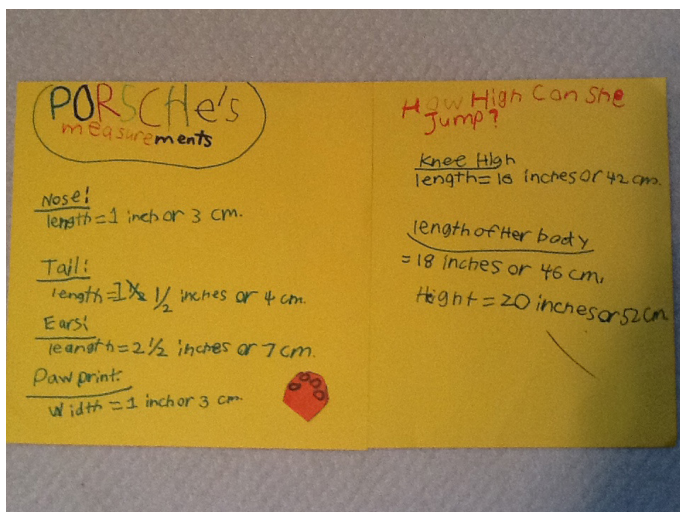 PORSCHe's
measurements
Nose!
length=1 inch or 3 cm.
Tail:
length= 1 1/2 inches or 4 cm.
Ears!
leangth=2 1/2 inches or 7 cm.
Paw print.
width=1 inch or 3 cm.
How High Can She
Jump?
Knee High
length= 16 inches or 42 cm.
length of Her body
= 18 inches or 46 cm.
Hight = 20 inches or 52 cm